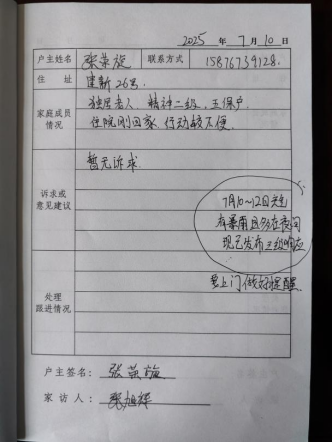 2025 年 7 月 10 日
户主姓名 张荣旋 联系方式 15876739128.
住 址 建新26号.
家庭成员情况 独居老人、精神二级、五保户.
住院刚回家.行动较不便.
诉求或意见建议 暂无诉求.
7月10~12日天气
有暴雨且多在夜间
现已发布三级响应
要上门做好提醒
处理跟进情况
户主签名: 张荣旋
家 访 人: 旭祥